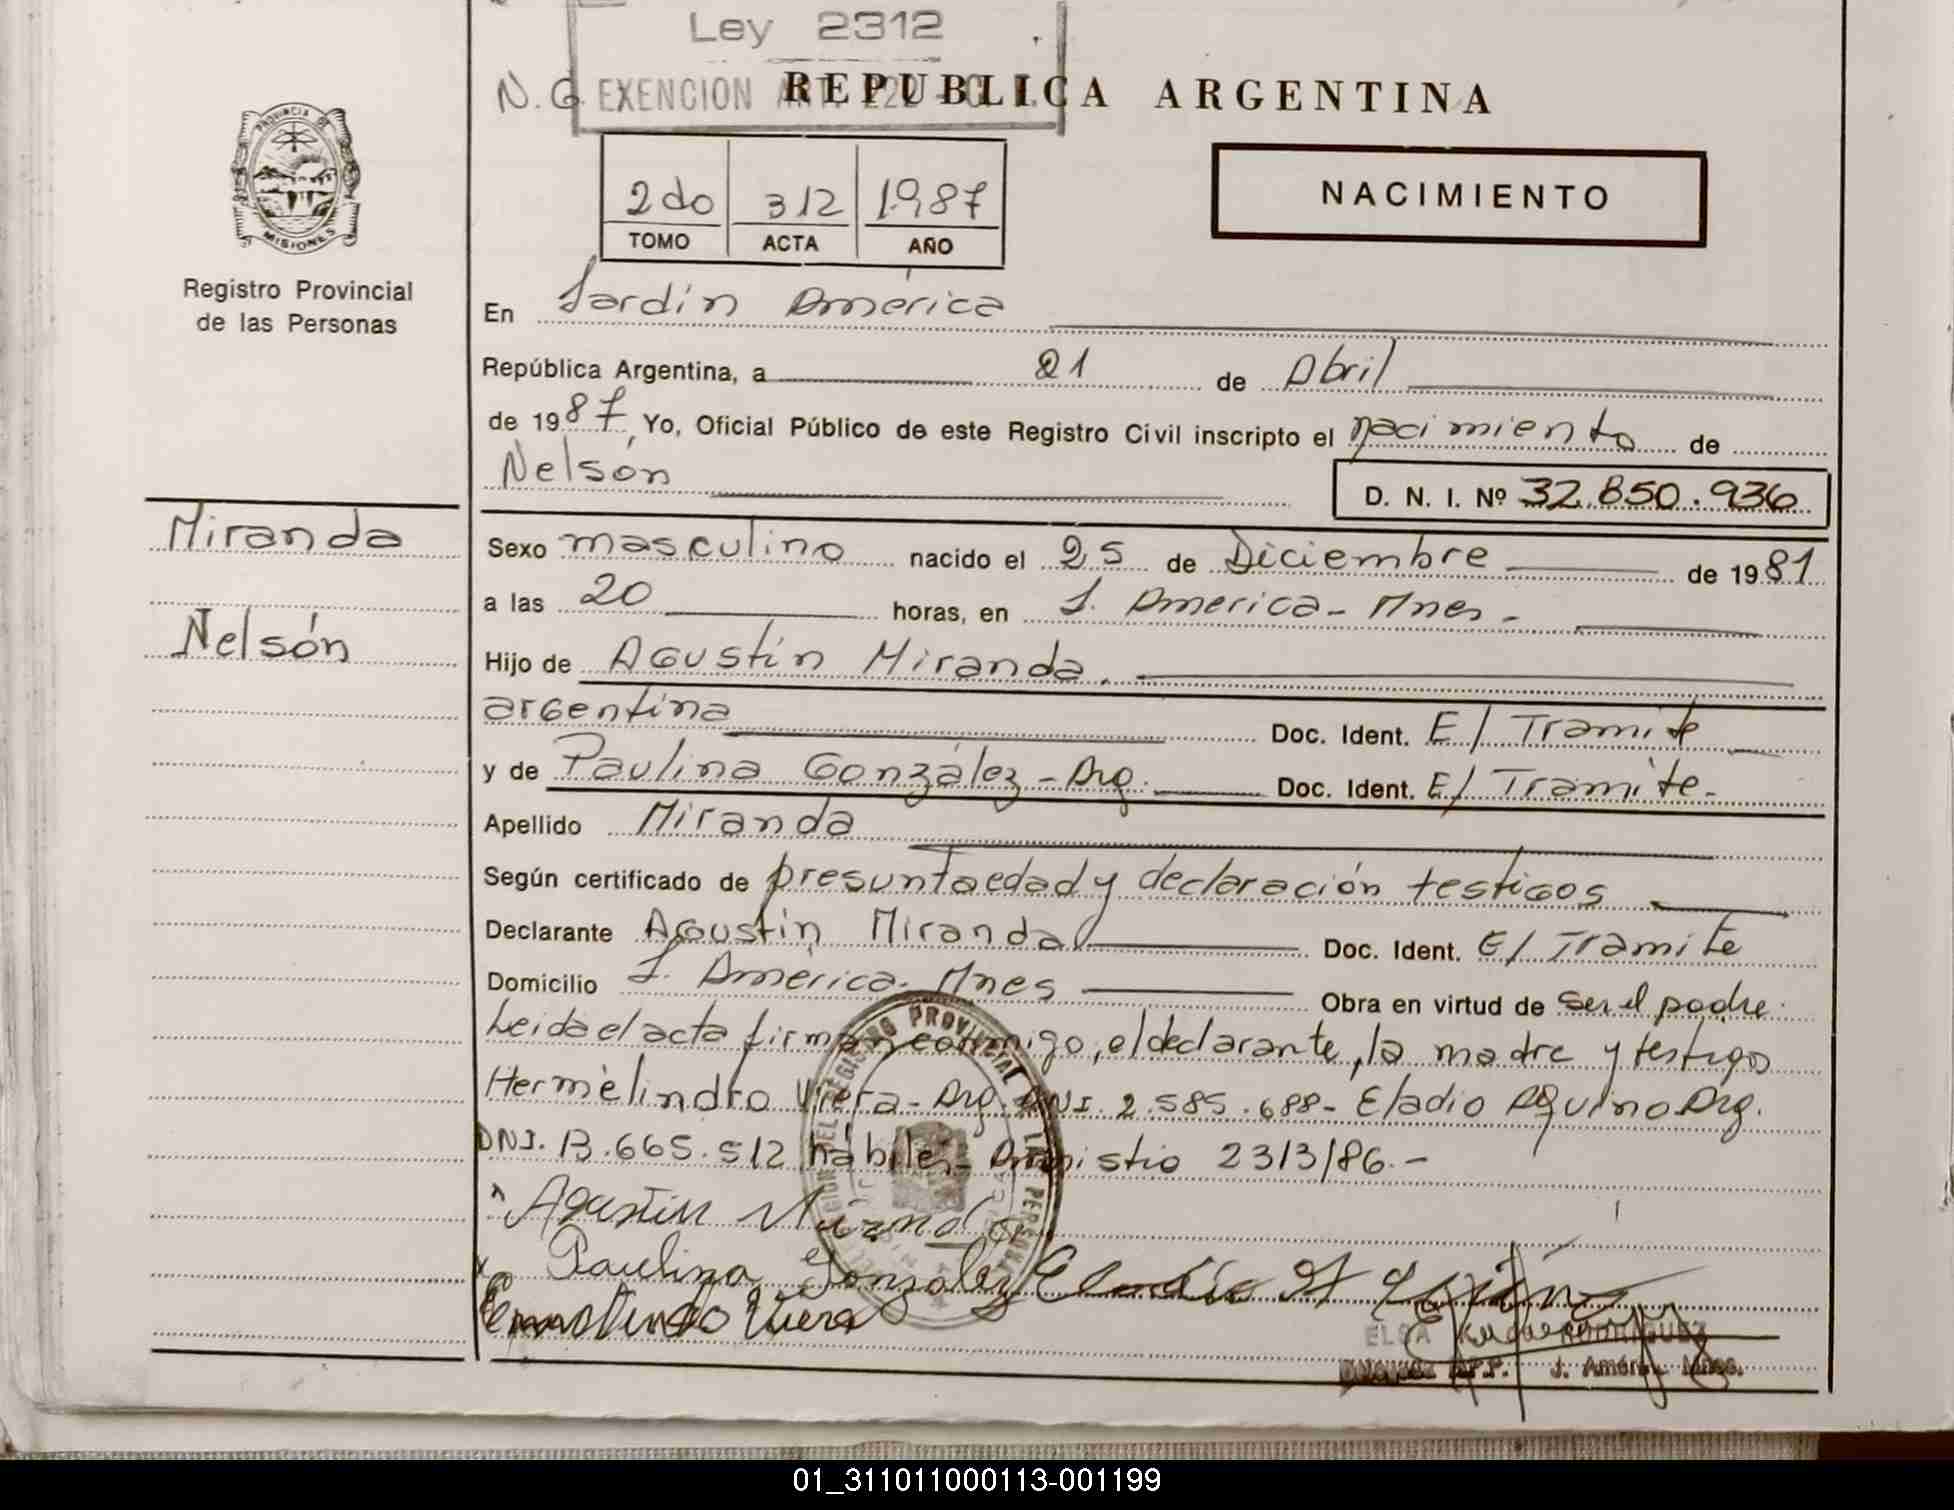 Ley 2312
N.G. EXENCION ART.
REPUBLICA ARGENTINA
2do 312 1987
TOMO ACTA AÑO
NACIMIENTO
PROVINCIA DE
MISIONES
Registro Provincial
de las Personas
En Jardín América
República Argentina, a 21 de Abril
de 1987, Yo, Oficial Público de este Registro Civil inscripto el nacimiento de
Nelsón
D. N. I. Nº 32.850.936
Miranda
Nelsón
Sexo masculino nacido el 25 de Diciembre de 1981
a las 20 horas, en J. America - Mnes -
Hijo de Agustín Miranda.
argentina Doc. Ident. E/ Tramite
y de Paulina González - Arg. Doc. Ident. E/ Tramite.
Apellido Miranda
Según certificado de presunta edad y declaración testigos
Declarante Agustín Miranda Doc. Ident. E/ Tramite
Domicilio J. América. Mnes Obra en virtud de ser el padre.
Leida el acta firman conmigo, el declarante, la madre y testigos
Hermelindro Viera - Arg. DNI. 2.585.688 - Eladio Aquino Arg.
DNI. 13.665.512 hábiles - Amnistio 23/3/86.-
Agustin Miranda
Paulina Gonzalez
Viera
ELSA RODRIGUEZ
R.P.P. J. Amér. Mnes.
01_311011000113-001199